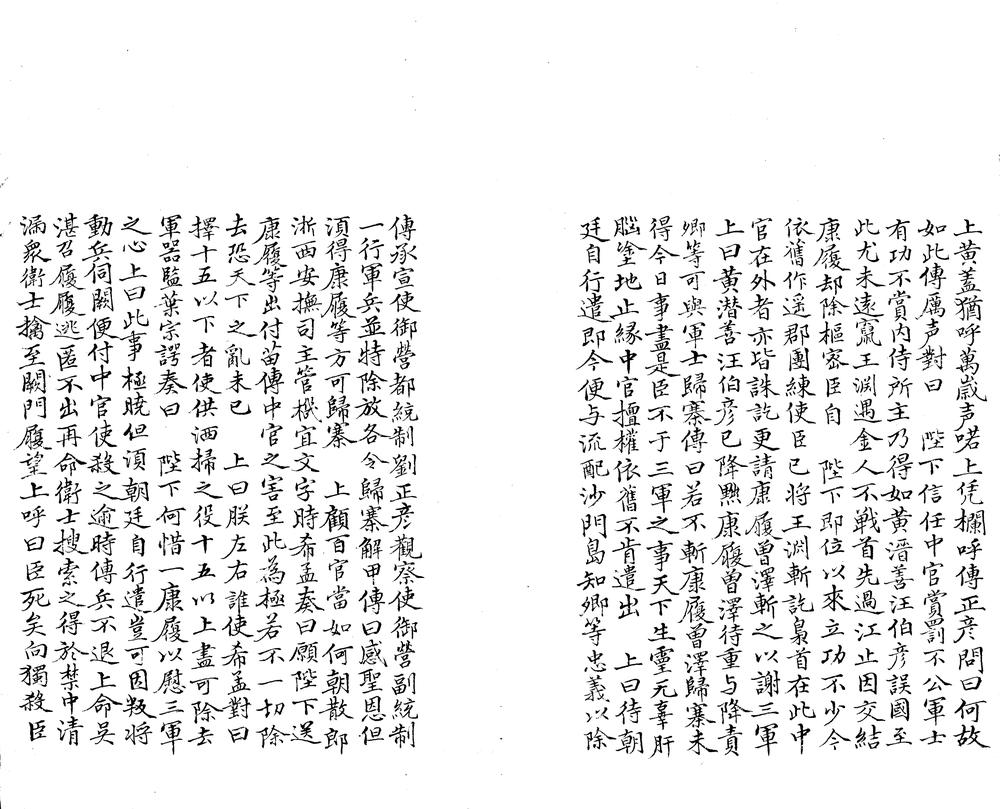 上黄盖猶呼萬歳声喏上凭欄呼傳正彦問曰何故
如此傳厲声對曰　陛下信任中官賞罰不公軍士
有功不賞内侍所主乃得如黄潛善汪伯彦誤國至
此尤未遠竄王渊遇金人不戦首先過江止因交結
康履却除樞密臣自　陛下即位以來立功不少今
依舊作遥郡團練使臣已將王渊斬訖梟首在此中
官在外者亦皆誅訖更請康履曾澤斬之以謝三軍
上曰黄潜善汪伯彦已降黜康履曽澤待重与降責
卿等可與軍士歸寨傳曰若不斬康履曾澤歸寨未
得今日事盡是臣不于三軍之事天下生靈无辜肝
腦塗地止縁中官擅權依舊不肯遣出　上曰待朝
廷自行遣即今便与流配沙門島知卿等忠義以除
傳承宣使御營都統制劉正彦觀察使御營副統制
一行軍兵並特除放各令歸寨解甲傳曰感聖恩但
湏得康履等方可歸寨　上顧百官當如何朝散郎
浙西安撫司主管機宜文字時希孟奏曰願陛下送
康履等出付苗傳中官之害至此為極若不一切除
去恐天下之亂未已　上曰朕左右誰使希孟對曰
擇十五以下者使供洒掃之役十五以上盡可除去
軍器監葉宗諤奏曰　陛下何惜一康履以慰三軍
之心上曰此事極曉但湏朝廷自行遣豈可因叛将
動兵伺闕便付中官使殺之逾時傳兵不退上命吳
湛召履履逃匿不出再命衛士搜索之得於禁中清
漏衆衛士擒至闕門履望上呼曰臣死矣向獨殺臣